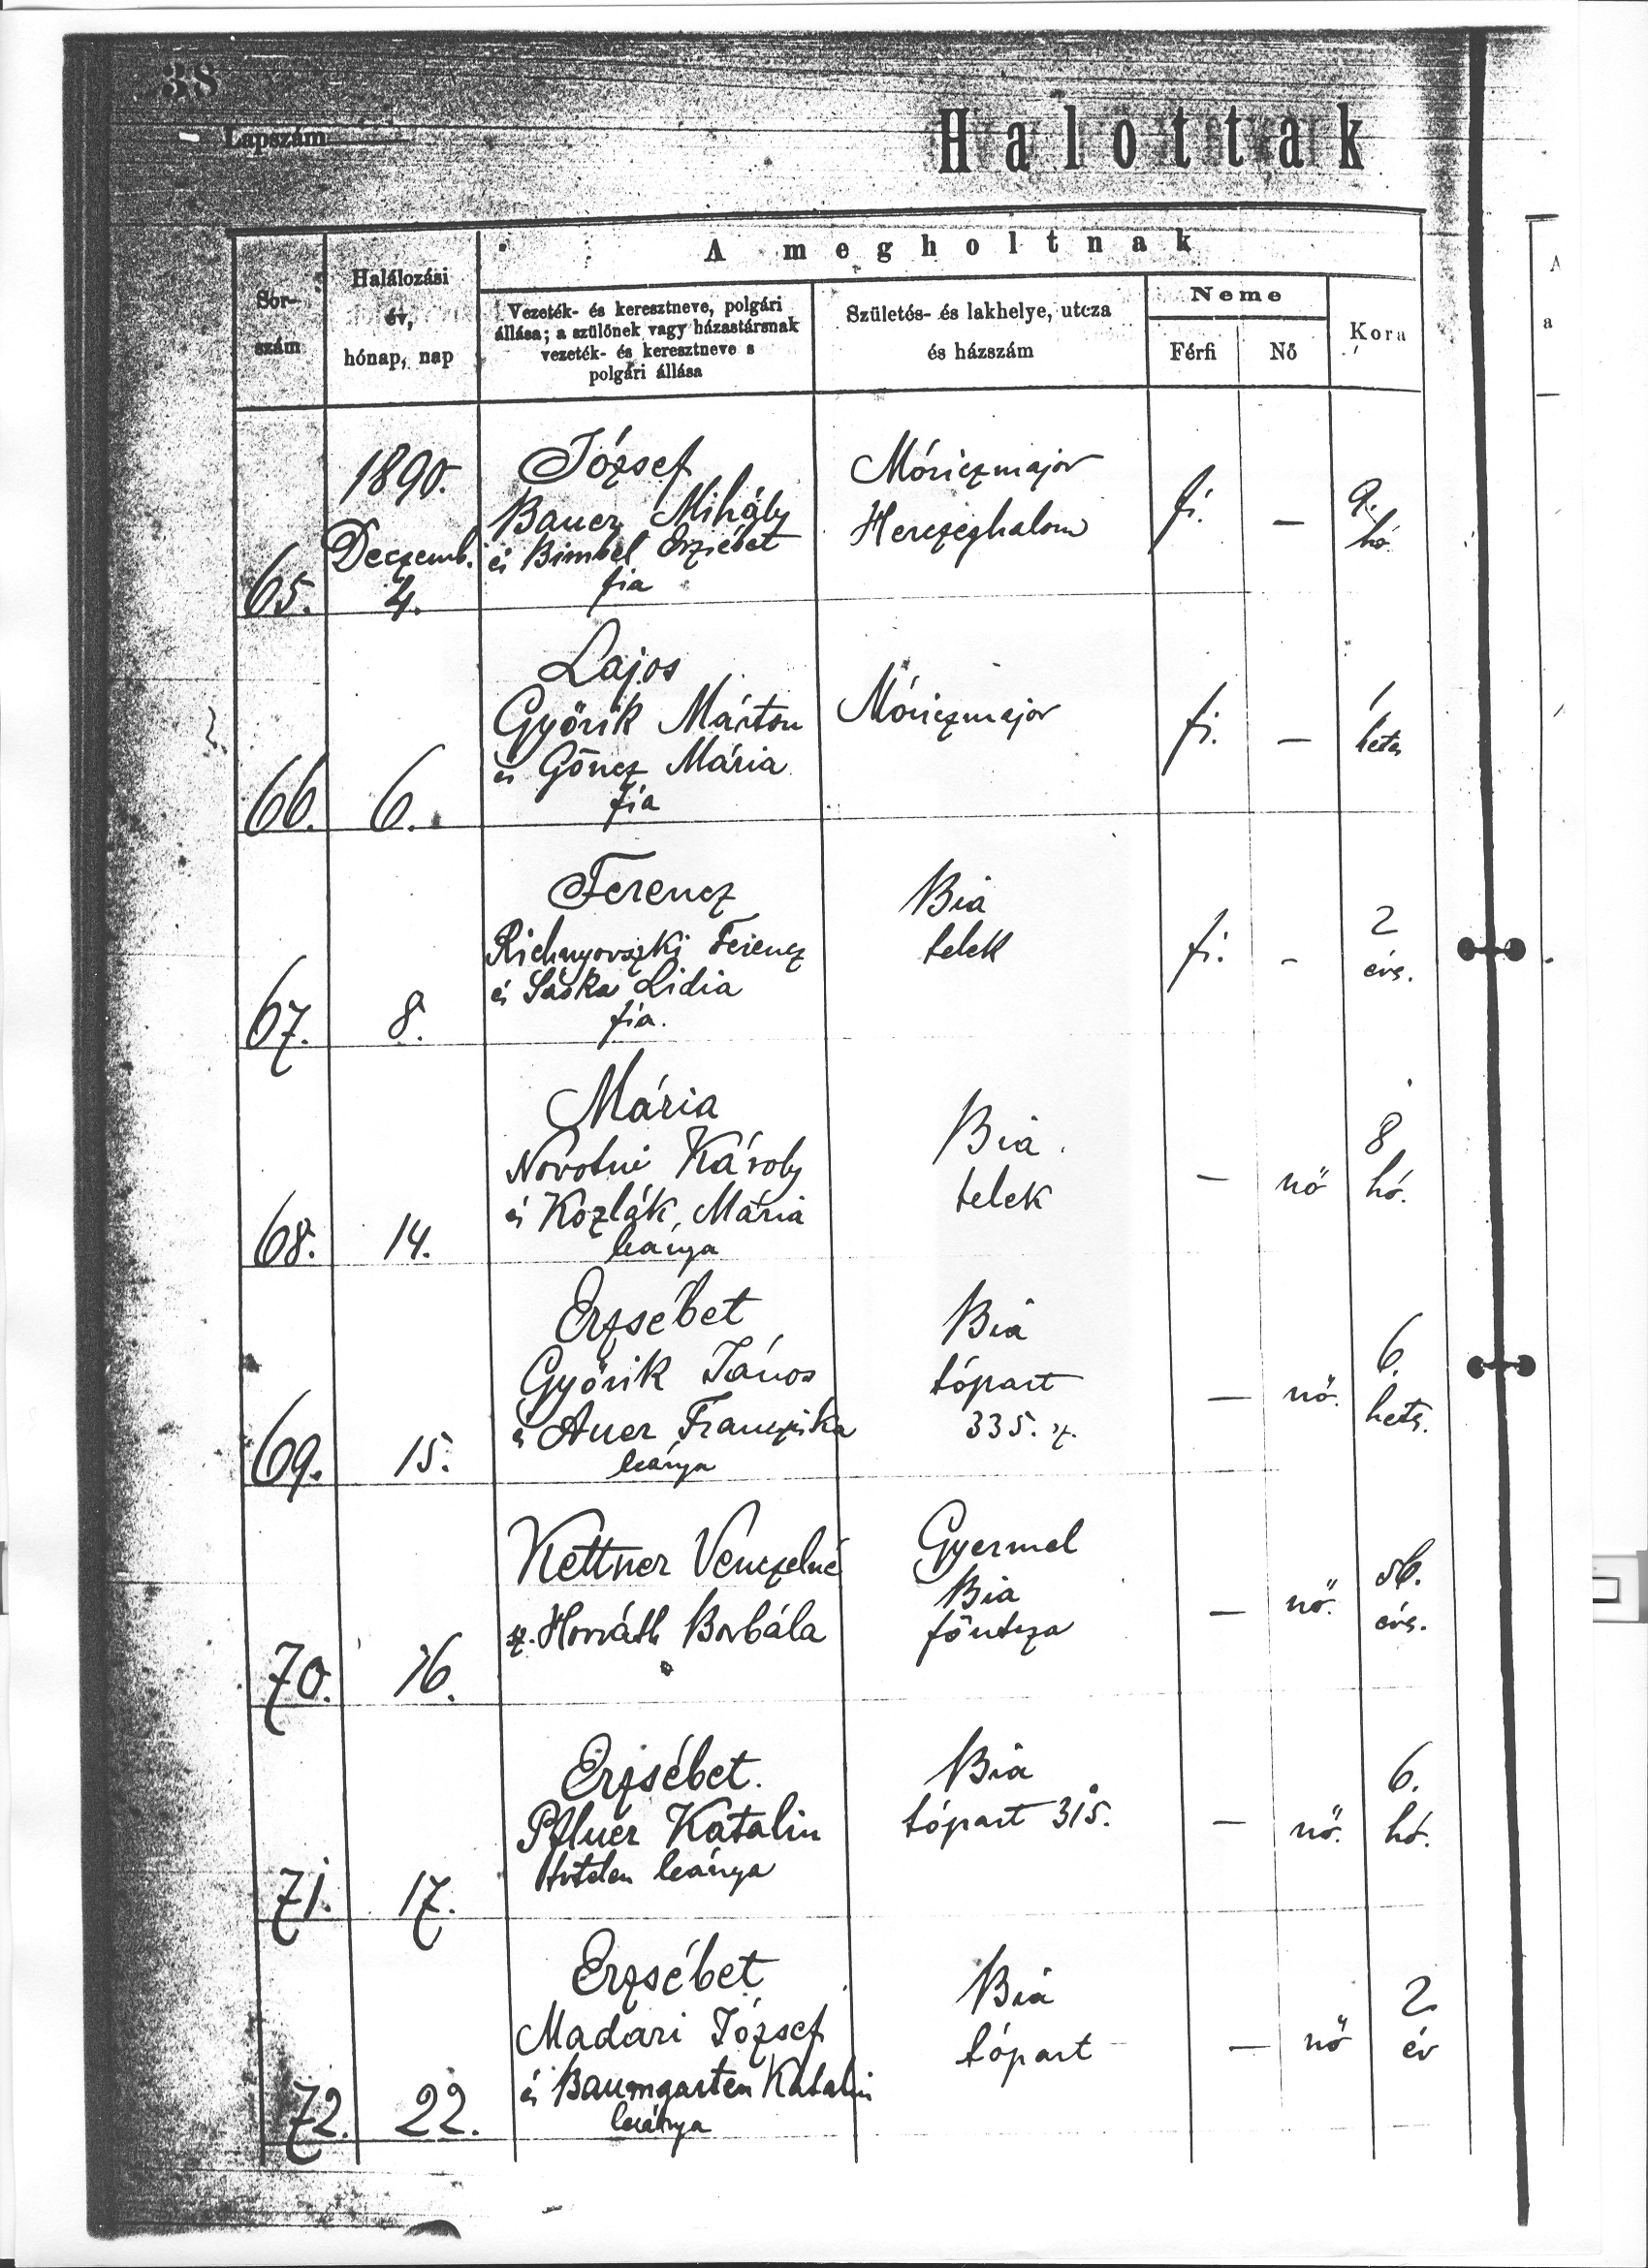 38
Lapszám
Halottak
A megholtnak
Sor-
szám
Halálozási
év,
hónap, nap
Vezeték- és keresztneve, polgári
állása; a szülőnek vagy házastársnak
vezeték- és keresztneve s
polgári állása
Születés- és lakhelye, utcza
és házszám
Neme
Férfi
Nő
Kora
65.
1890.
Deczemb.
4.
József
Bauer Mihály
és Bimbel Erzsébet
fia
Móriczmajor
Herczeghalom
fi.
—
9.
hó.
66.
6.
Lajos
Győrik Márton
és Göncz Mária
fia
Móriczmajor
fi.
—
1
hetes
67.
8.
Ferencz
Richnyovszki Ferencz
és Sáska Lidia
fia.
Bia
telek
fi.
-
2
évs.
68.
14.
Mária
Novotni Károly
és Kozlák Mária
leánya
Bia
telek
—
nő
8
hó.
69.
15.
Erzsébet
Győrik János
és Auer Francziska
leánya
Bia
tópart
335. sz.
—
nő.
6.
hets.
70.
16.
Kettner Venczelné
sz. Horváth Borbála
Gyermel
Bia
főutcza
—
nő.
évs.
71.
17.
Erzsébet.
Katalin
leánya
Bia
tópart 315.
—
nő.
6.
hó.
72.
22.
Erzsébet
Madari József
és Baumgarten Katalin
leánya
Bia
tópart
—
nő
2
év